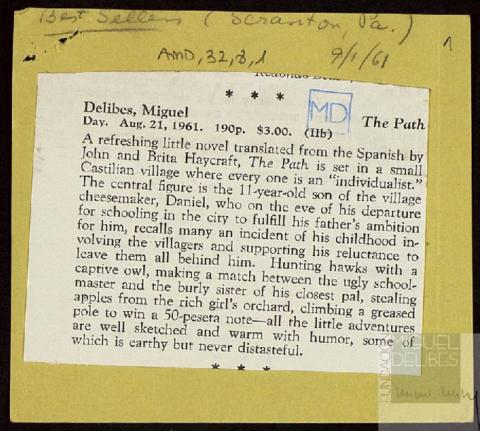 Best Sellers (Scranton, Pa.)
AMD,32,8,1
9/1/61
1
* * *
MD
Delibes, Miguel The Path
Day. Aug. 21, 1961. 190p. $3.00. (IIb)
A refreshing little novel translated from the Spanish by
John and Brita Haycraft, The Path is set in a small
Castilian village where every one is an “individualist.”
The central figure is the 11-year-old son of the village
cheesemaker, Daniel, who on the eve of his departure
for schooling in the city to fulfill his father's ambition
for him, recalls many an incident of his childhood in-
volving the villagers and supporting his reluctance to
leave them all behind him. Hunting hawks with a
captive owl, making a match between the ugly school-
master and the burly sister of his closest pal, stealing
apples from the rich girl's orchard, climbing a greased
pole to win a 50-peseta note—all the little adventures
are well sketched and warm with humor, some of
which is earthy but never distasteful.
* * *
FUNDACIÓN
MIGUEL
DELIBES